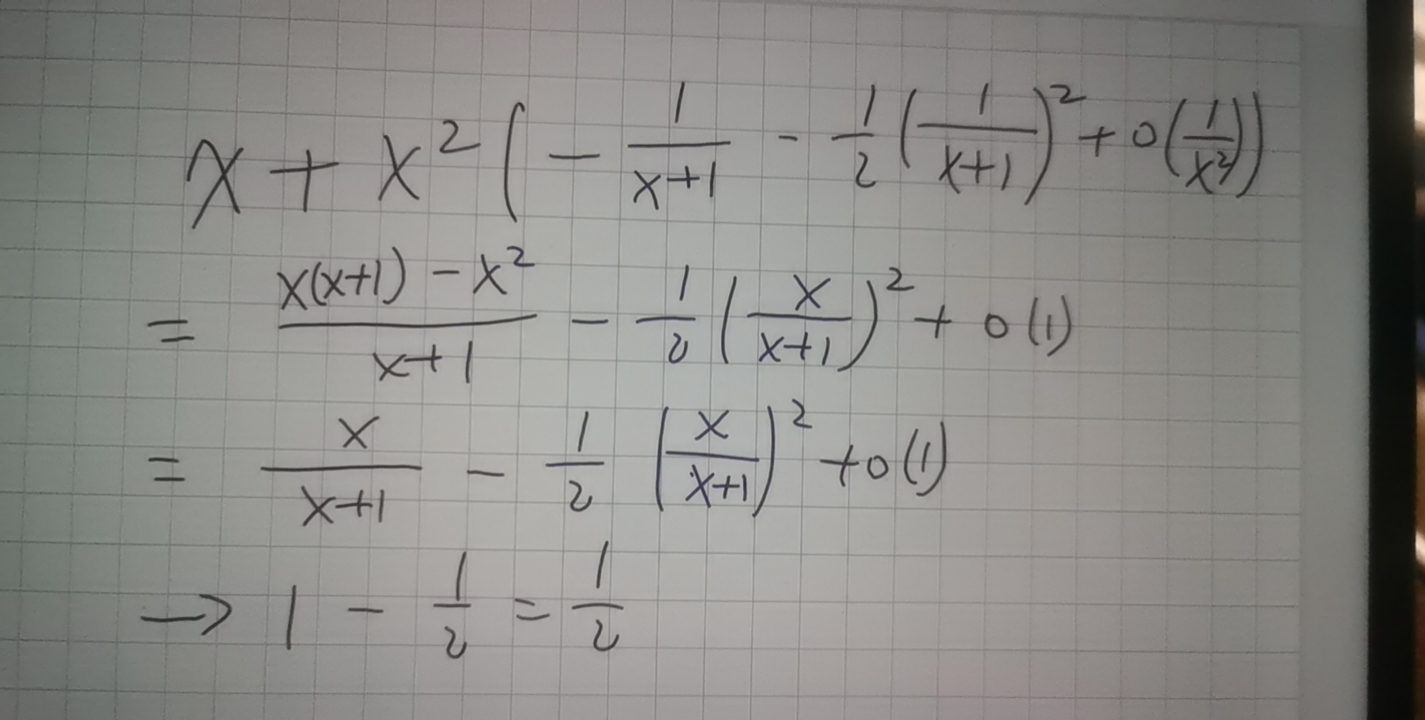 x + x² ( − 1/(x+1) − 1/2 (1/(x+1))² + o(1/x²))
= (x(x+1) − x²)/(x+1) − 1/2 (x/(x+1))² + o(1)
= x/(x+1) − 1/2 (x/(x+1))² + o(1)
→ 1 − 1/2 = 1/2